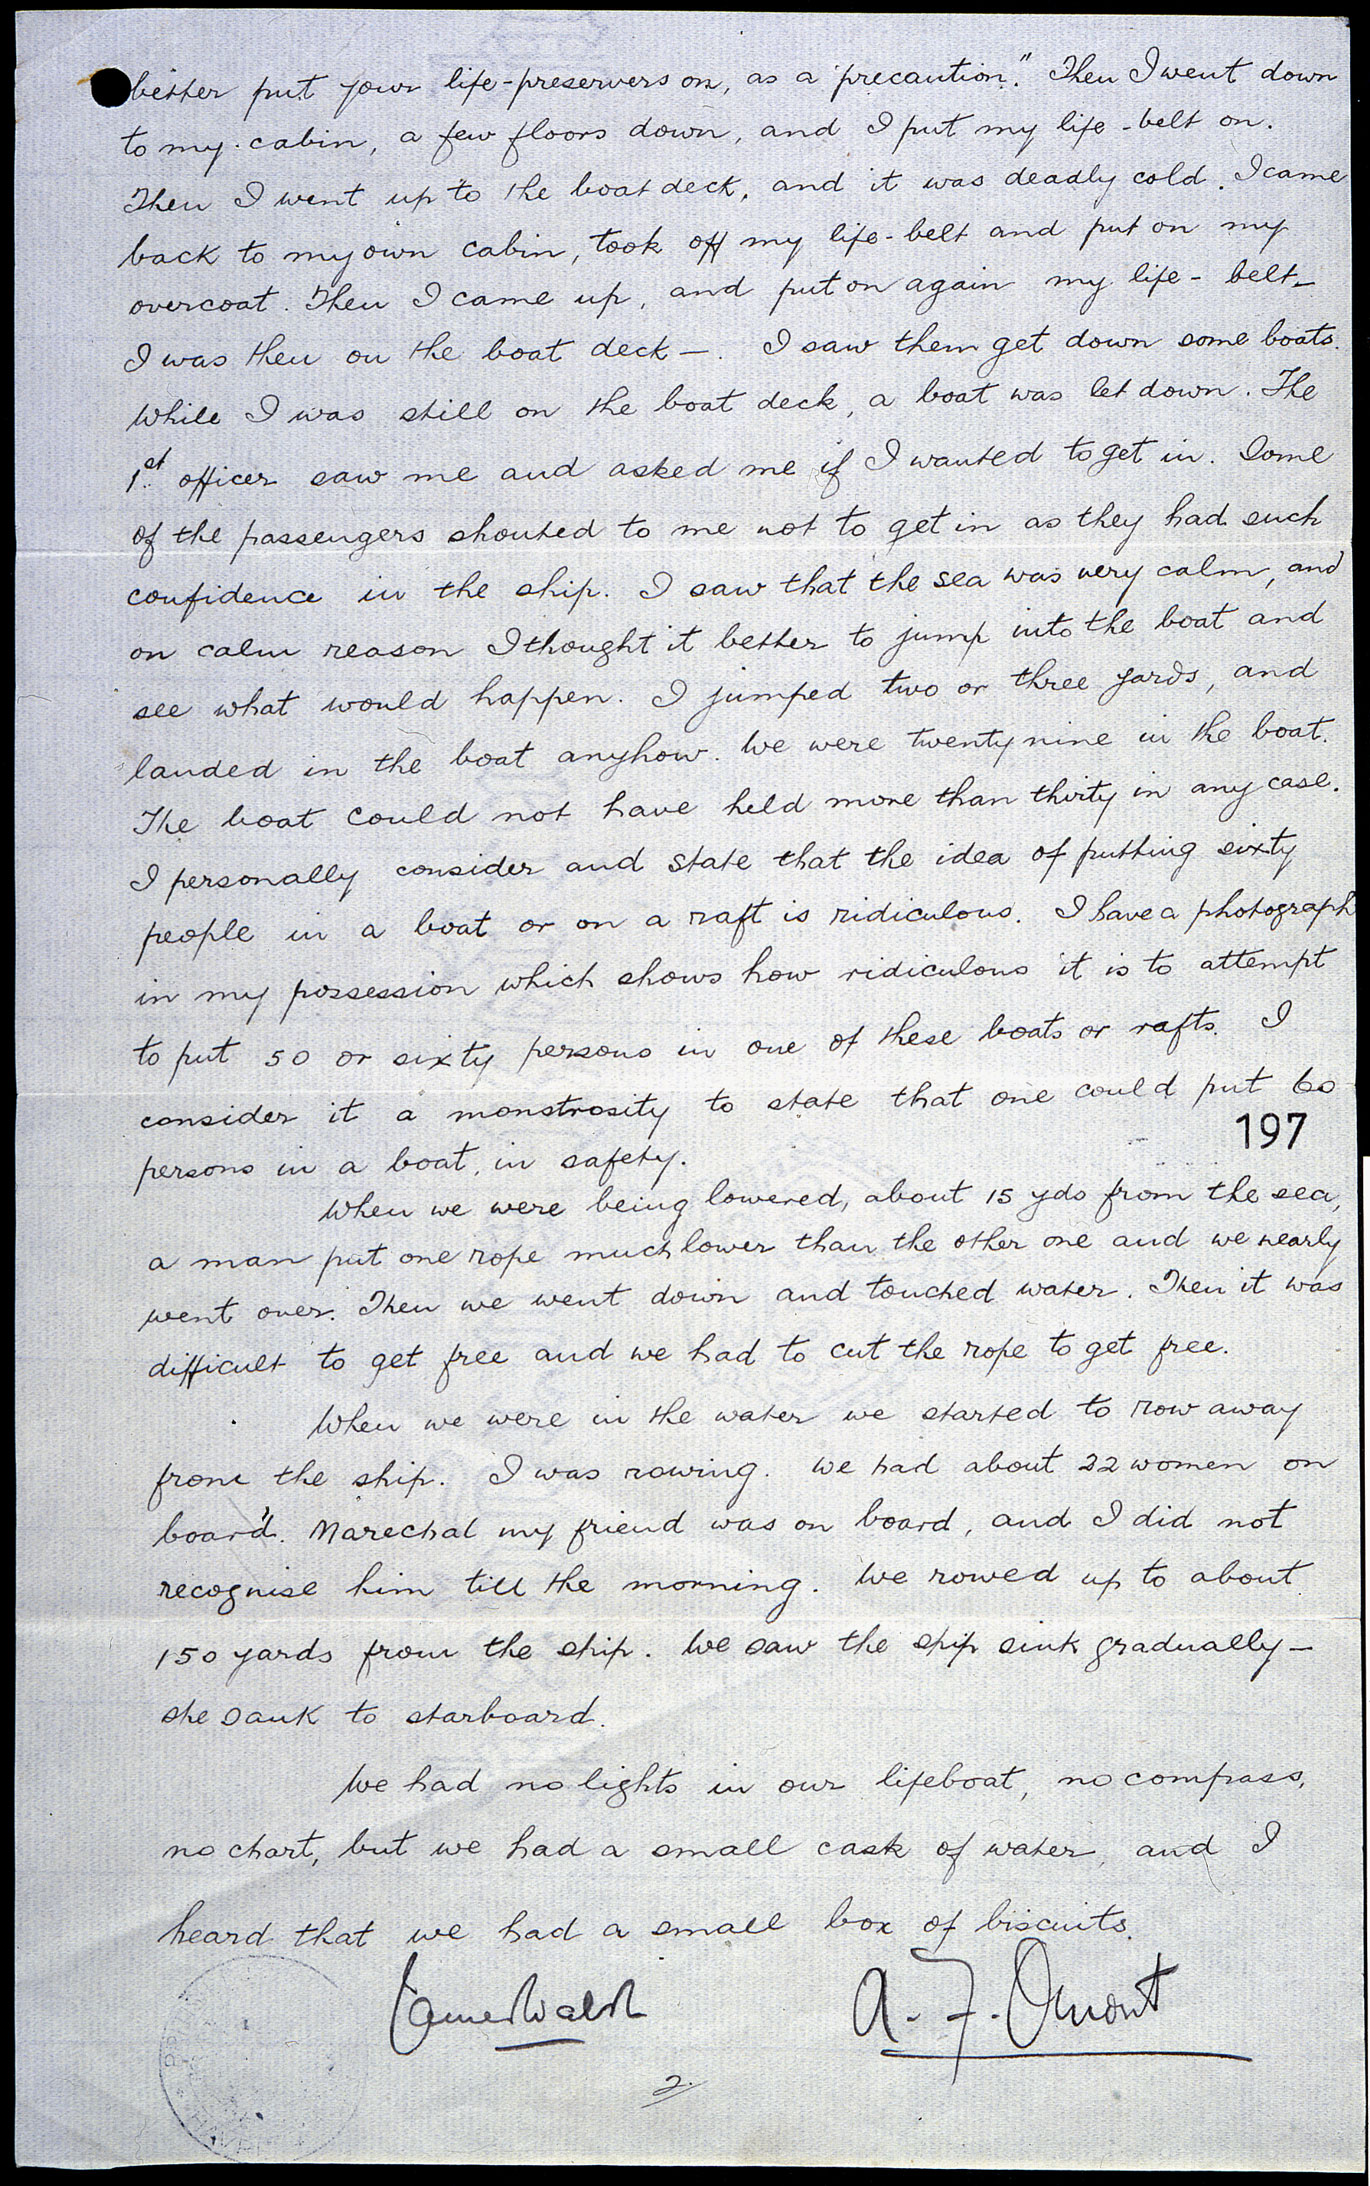 better put your life-preservers on, as a precaution." Then I went down
to my cabin, a few floors down, and I put my life-belt on.
Then I went up to the boat deck, and it was deadly cold. I came
back to my own cabin, took off my life-belt and put on my
overcoat. Then I came up, and put on again my life-belt.
I was then on the boat deck —. I saw them get down some boats.
While I was still on the boat deck, a boat was let down. The
1st officer saw me and asked me if I wanted to get in. Some
of the passengers shouted to me not to get in as they had such
confidence in the ship. I saw that the sea was very calm, and
on calm reason I thought it better to jump into the boat and
see what would happen. I jumped two or three yards, and
landed in the boat anyhow. We were twenty nine in the boat.
The boat could not have held more than thirty in any case.
I personally consider and state that the idea of putting sixty
people in a boat or on a raft is ridiculous. I have a photograph
in my possession which shows how ridiculous it is to attempt
to put 50 or sixty persons in one of these boats or rafts. I
consider it a monstrosity to state that one could put 60
197
persons in a boat, in safety.
When we were being lowered, about 15 yds from the sea,
a man put one rope much lower than the other one and we nearly
went over. Then we went down and touched water. Then it was
difficult to get free and we had to cut the rope to get free.
When we were in the water we started to row away
from the ship. I was rowing. We had about 22 women on
board. Marechal my friend was on board, and I did not
recognise him till the morning. We rowed up to about
150 yards from the ship. We saw the ship sink gradually —
she sank to starboard.
We had no lights in our lifeboat, no compass,
no chart, but we had a small cask of water, and I
heard that we had a small box of biscuits.
A. F. Omont
2.